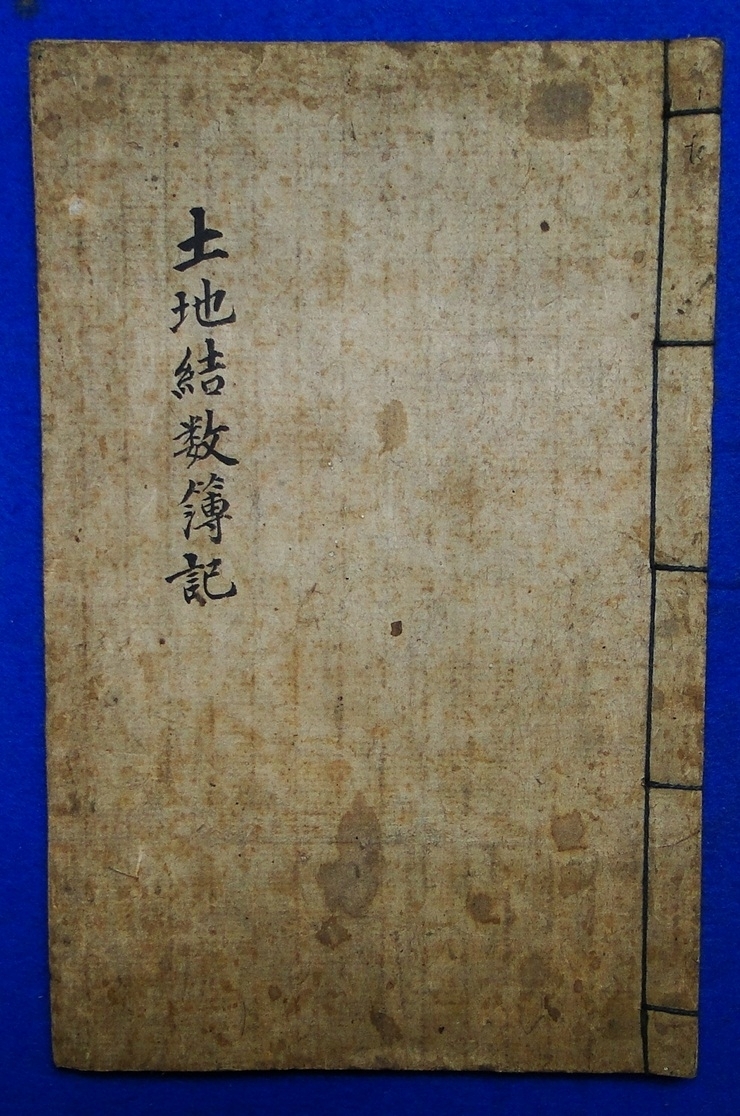 土地結数簿記